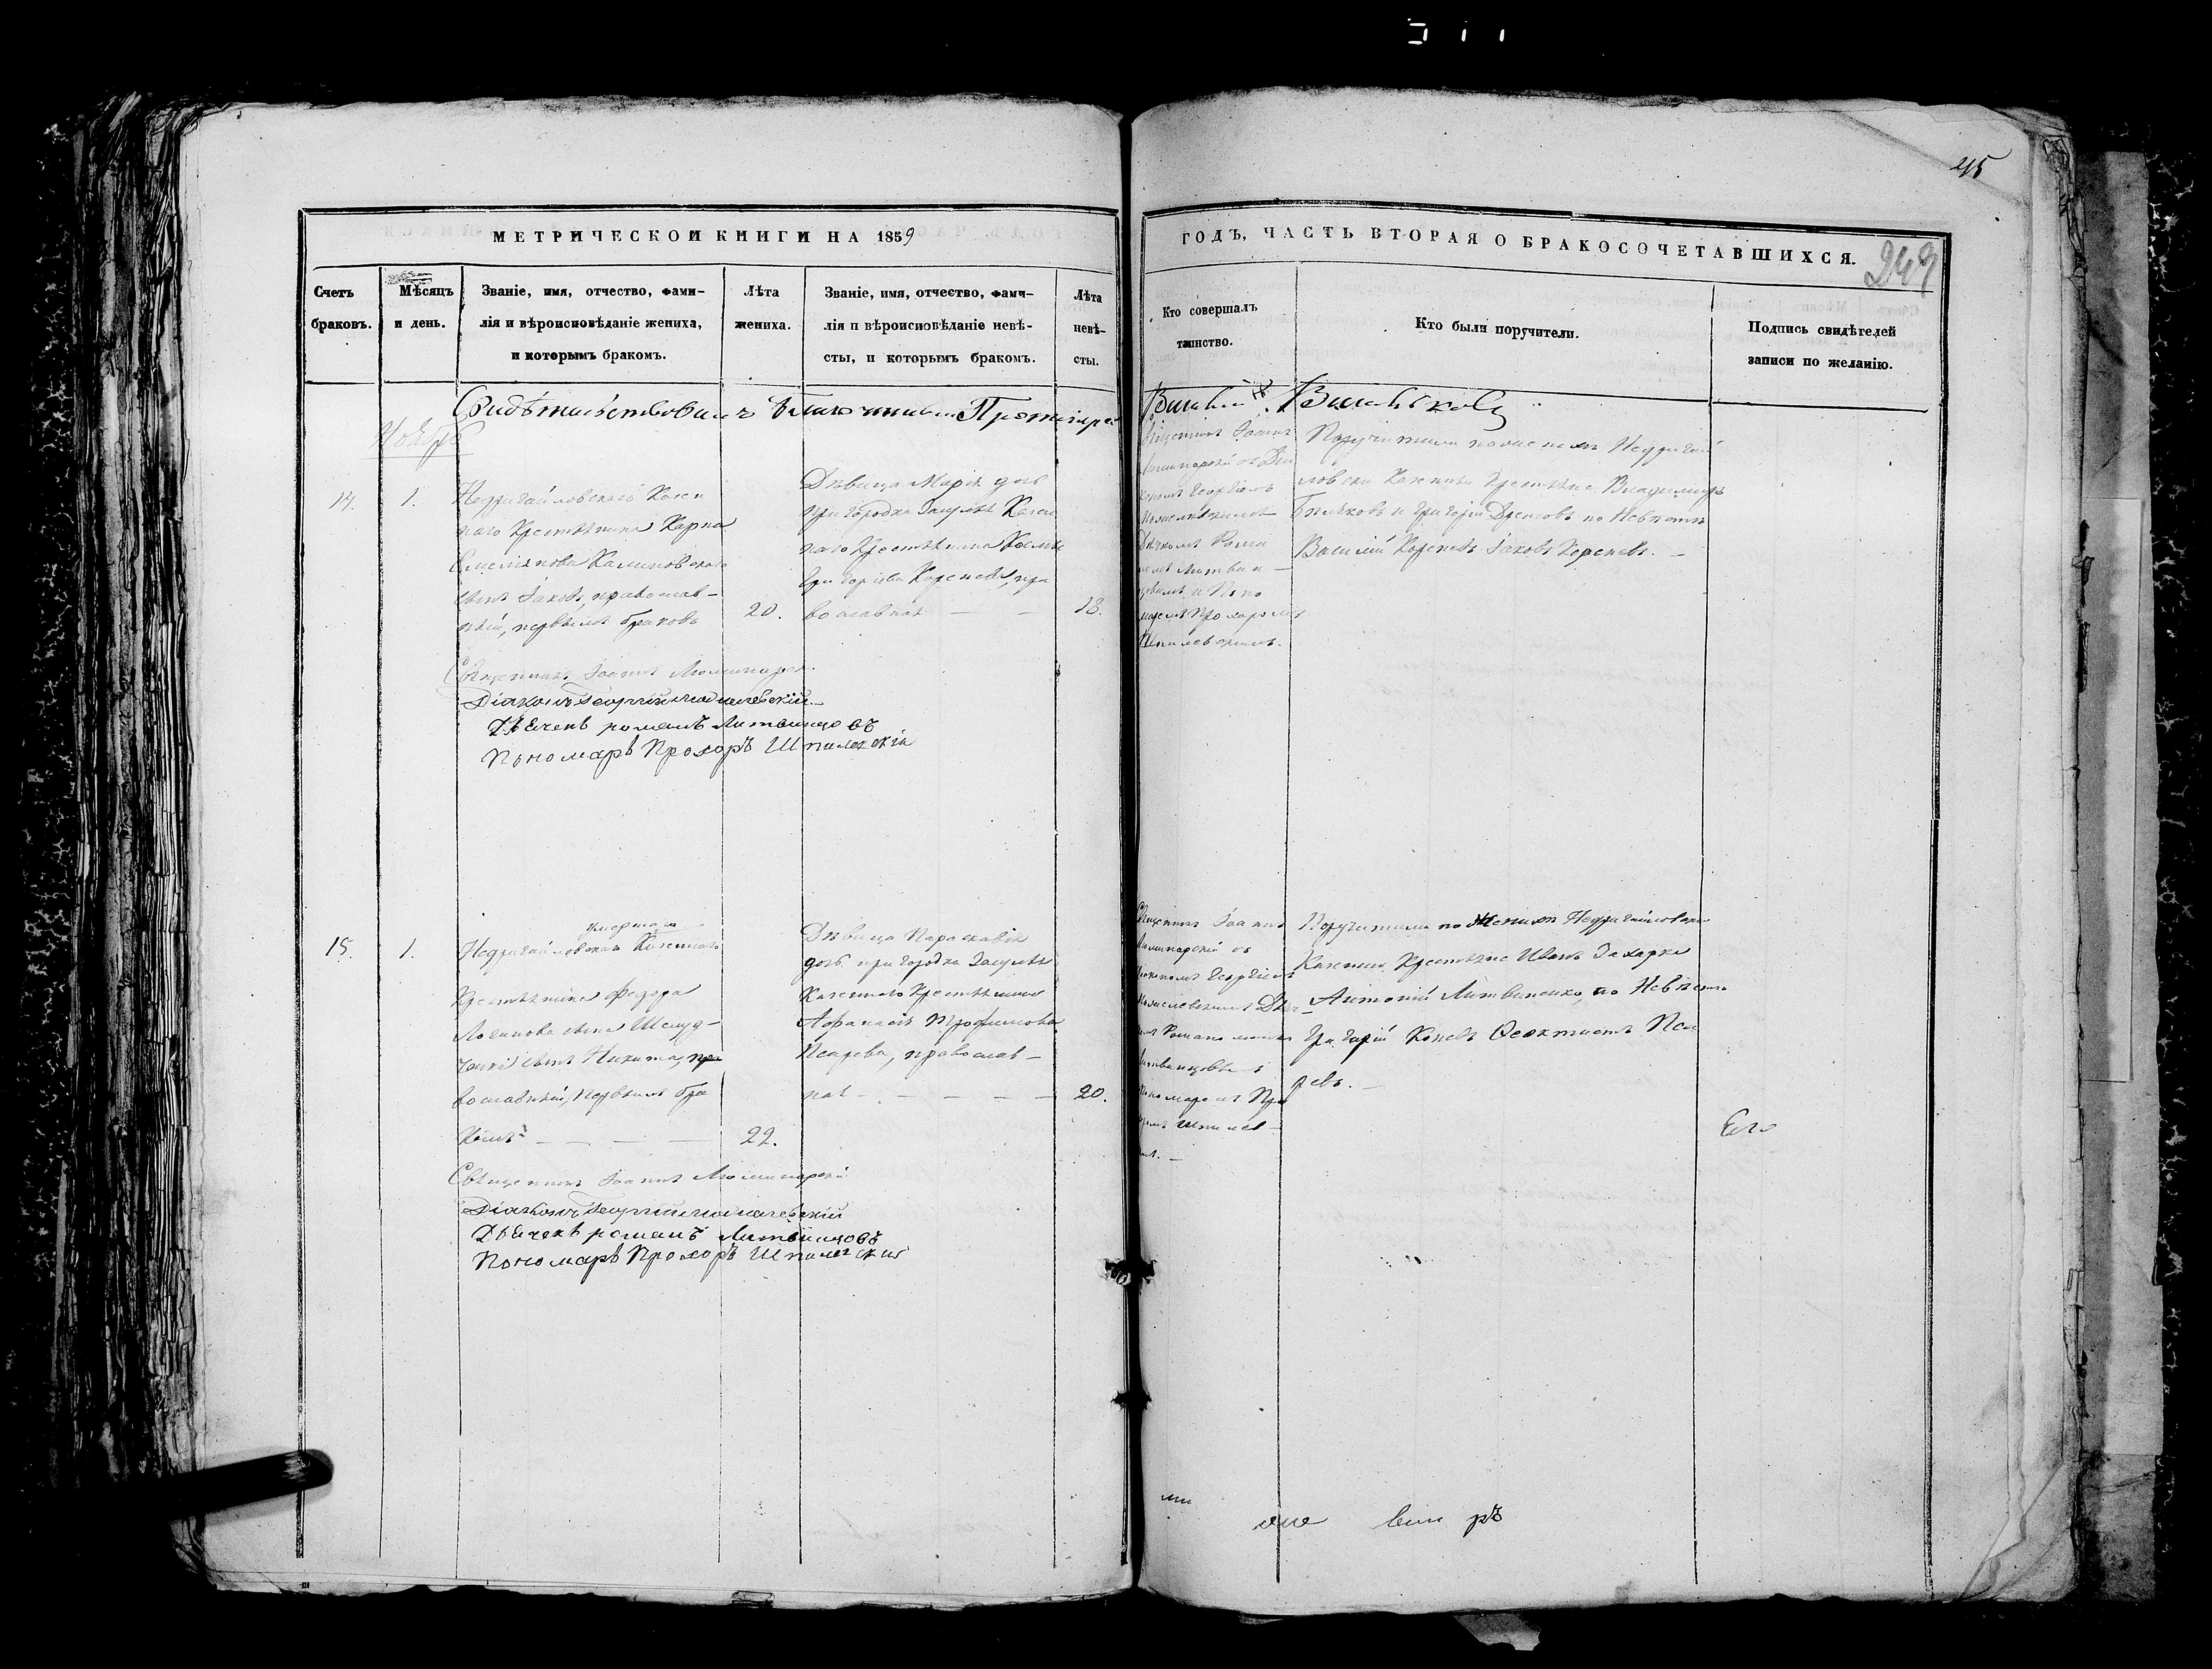 45
249
МЕТРИЧЕСКОЙ КНИГИ НА 1859
ГОДЪ, ЧАСТЬ ВТОРАЯ О БРАКОСОЧЕТАВШИХСЯ.
Счетъ
браковъ.
Мѣсяцъ
и день.
Званіе, имя, отчество, фами-
лія и вѣроисповѣданіе жениха,
и которымъ бракомъ.
Лѣта
жениха.
Званіе, имя, отчество, фами-
лія и вѣроисповѣданіе невѣ-
сты, и которымъ бракомъ.
Лѣта
невѣ-
сты.
Кто совершалъ
таинство.
Кто были поручители.
Подпись свидѣтелей
записи по желанію.
Ноября
14.
1.
Недригайловскаго Казен
наго Крестьянина Карпа
Емельянова Калиновскаго
сынъ Іаковъ, православ-
ный, первымъ бракомъ
20.
Дѣвица Марія дочь
пригородка Засулья Казен
наго Крестьянина Козьмы
Григорьева Коренева, пра
вославная
18.
Священникъ Іоаннъ
съ Діа
кономъ Георгіемъ
Дьячкомъ Рома
номъ Литвин
цовымъ и Поно
маремъ Прохоромъ
Шпилевскимъ.
Поручители по женихѣ Недригай
ловскіе Казенные Крестьяне Владимиръ
Бѣликовъ и Григорій Денисовъ по Невѣстѣ
Василій Кореневъ Іаковъ Кореневъ.
Священникъ Іоаннъ
Діаконъ Георгій
Дьячекъ романъ Литвинцовъ
Пономарь Прохоръ Шпилевскій
15.
1.
умершаго
Недригайловскаго Казеннаго
Крестьянина Федора
Логинова сына Шелуд-
ченка сынъ Никита, пра
вославный, первымъ бра
комъ
22.
Дѣвица Параскавія
дочь пригородка Засулья
Казеннаго Крестьянина
Афанасія Трофимова
Псарева, православ-
ная
20.
Священникъ Іоаннъ
съ
Діакономъ Георгіемъ
Дьяч-
комъ Романомъ
Литвинцовымъ
Пономаремъ Про
хоромъ Шпилев-
Поручители по Женихѣ Недригайловскіе
Казенные Крестьяне Иванъ Захарка
Антоній Литвиненко, по Невѣстѣ
Григорій Коневъ Феоктистъ Пса
ревъ.
Его
Священникъ Іоаннъ
Діаконъ Георгій
Дьячекъ романъ Литвинцовъ
Пономарь Прохоръ Шпилевскій